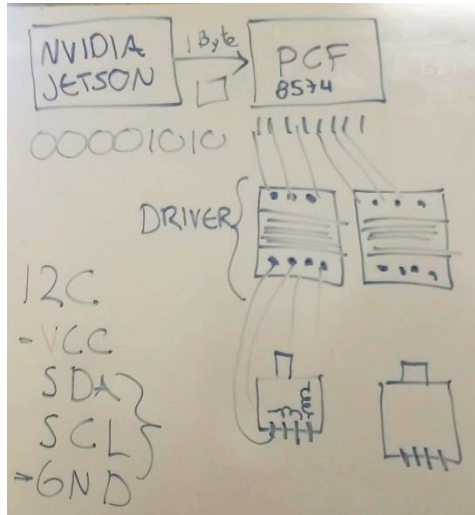 NVIDIA
JETSON
1 Byte
PCF
8574
00001010
DRIVER
I2C
- VCC
SDA
SCL
GND